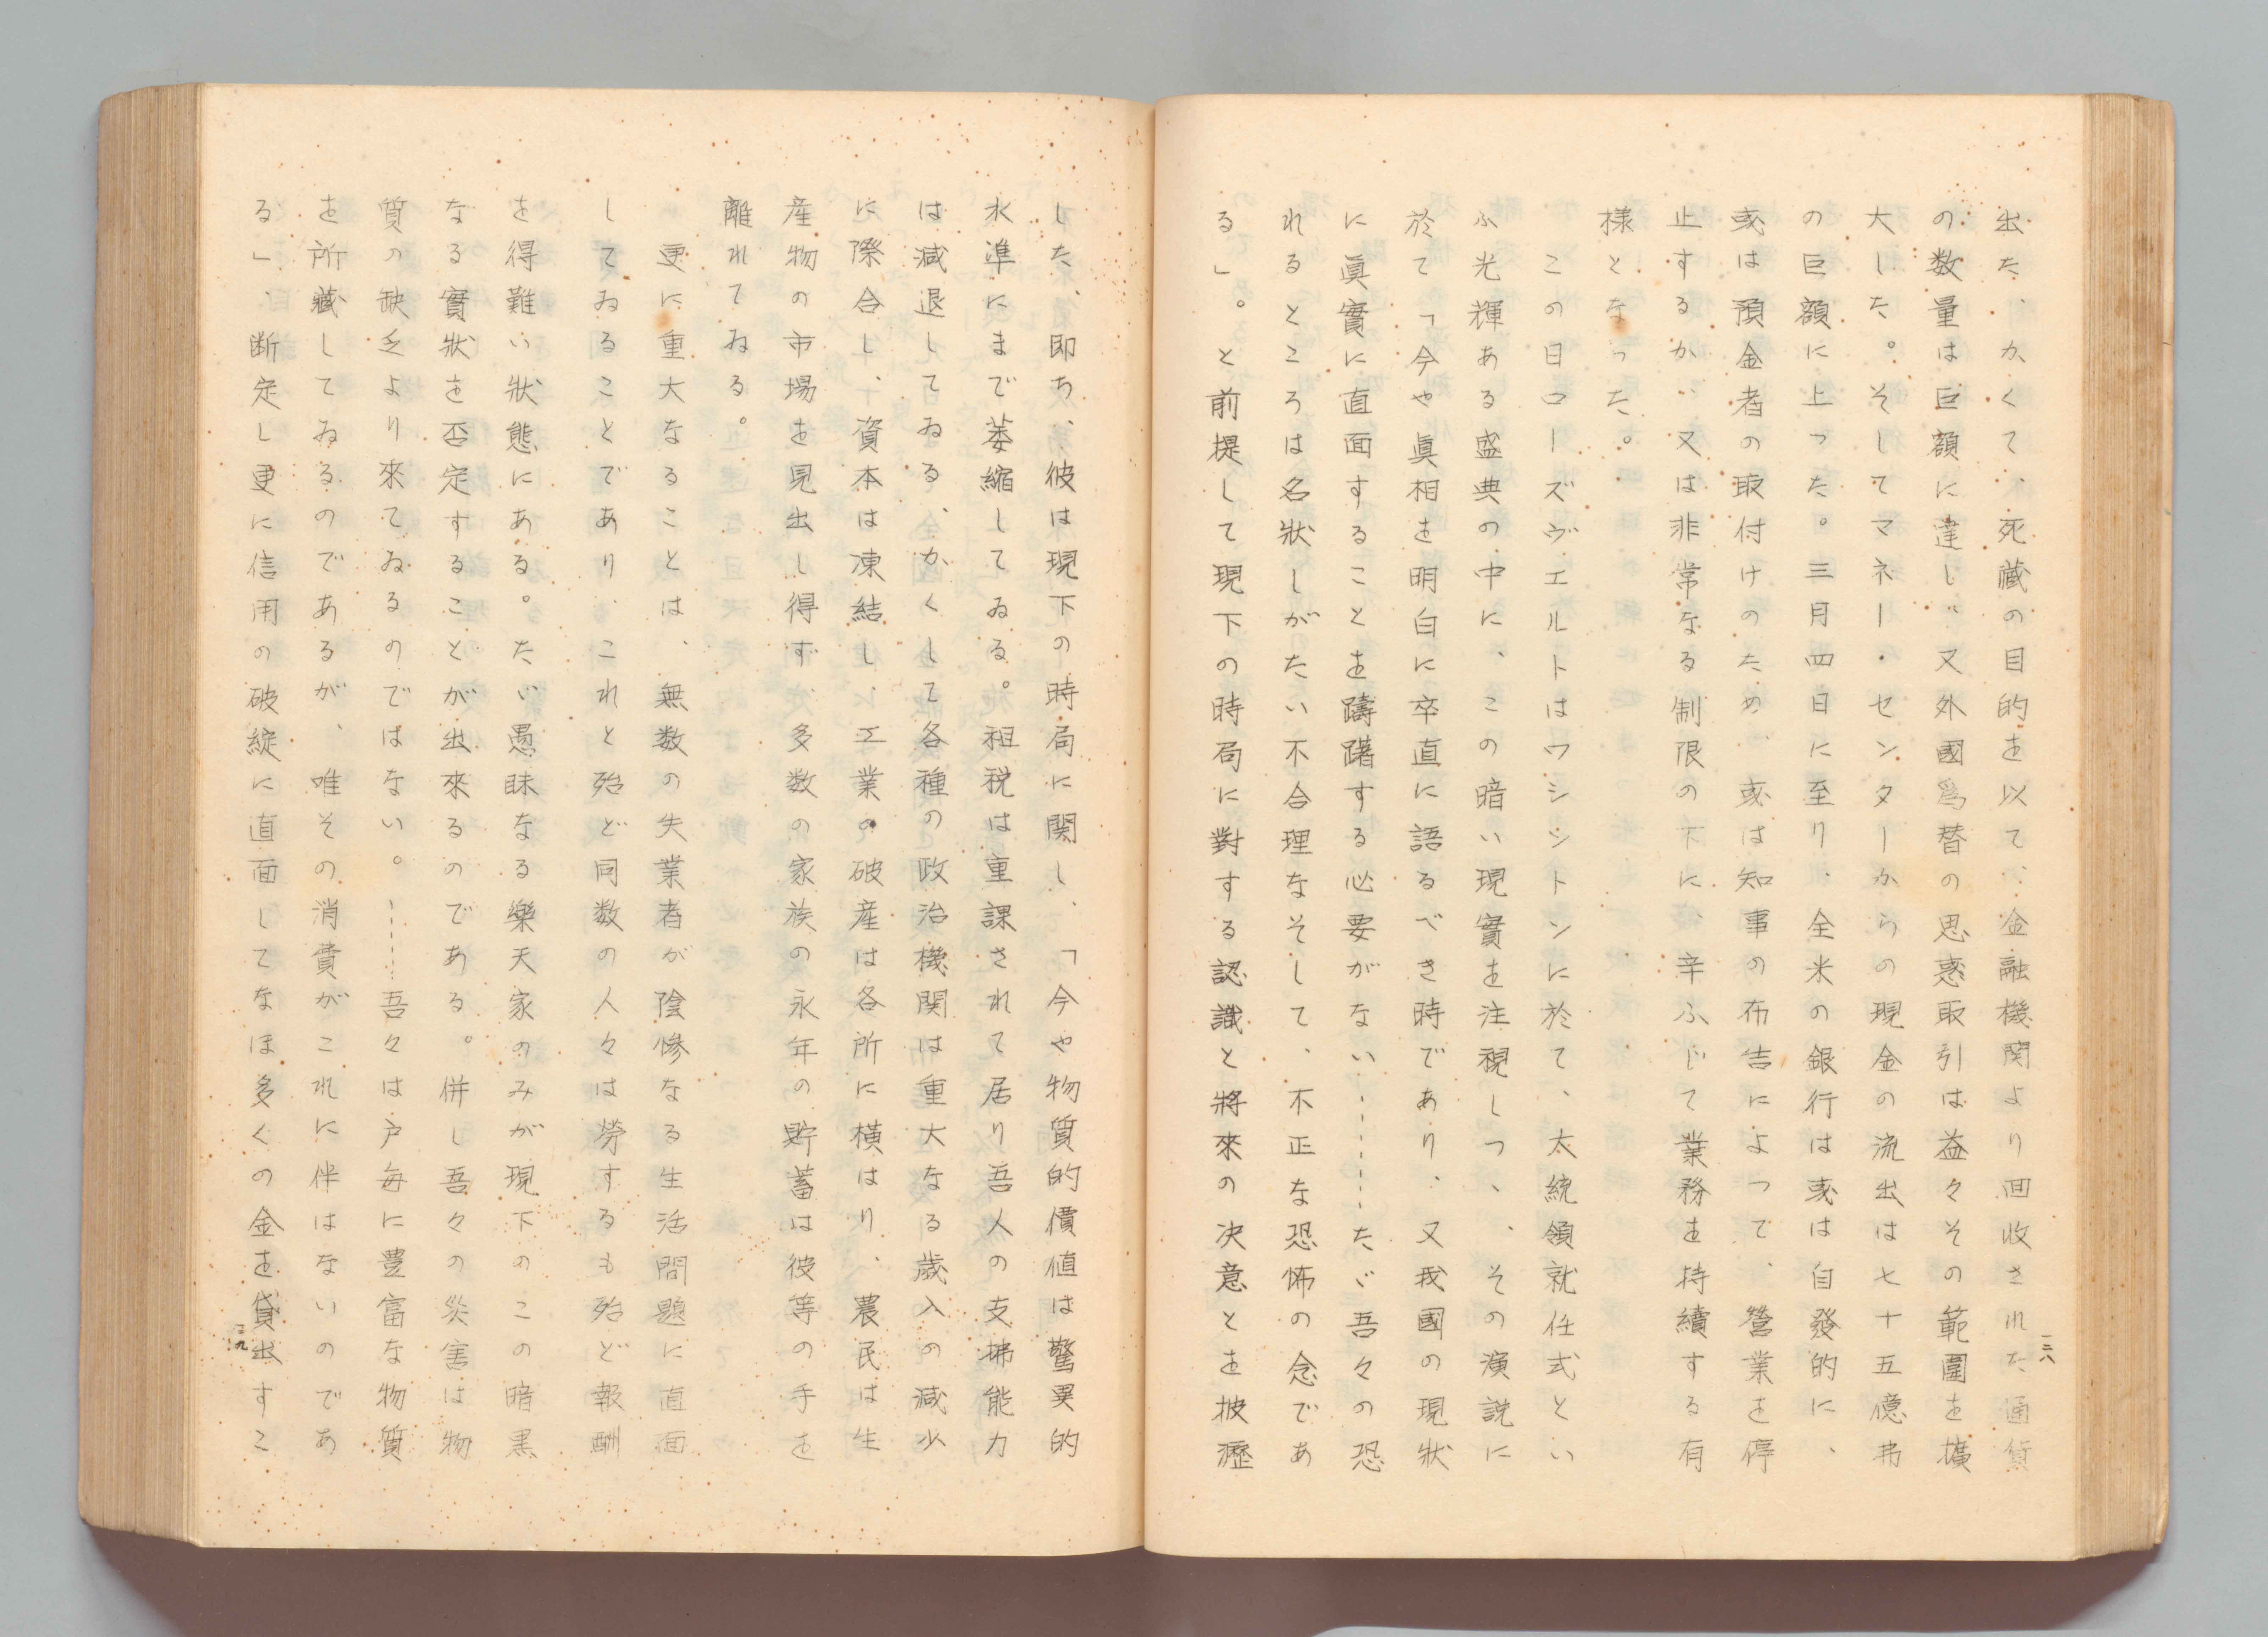 出た、かくて、死藏の目的を以て、金融機関より回收された通貨
の数量は巨額に達し、又外國爲替の思惑取引は益々その範圍を擴
大した。そしてマネー・センターからの現金の流出は七十五億弗
の巨額に上った。三月四日に至り、全米の銀行は或は自發的に、
或は預金者の取付けのため、或は知事の布告によって、營業を停
止するか、又は非常なる制限の下に、辛ふじて業務を持續する有
様となった。
この日ローズヴエルトはワシントンに於て、太統領就任式とい
ふ光輝ある盛典の中に、この暗い現實を注視しつゝ、その演説に
於て「今や眞相を明白に卒直に語るべき時であり、又我國の現狀
に眞實に直面することを躊躇する必要がない……たゞ吾々の恐
れるところは名狀しがたい不合理なそして、不正な恐怖の念であ
る」。と前提して現下の時局に對する認識と將來の決意とを披瀝
二三八
した、即ち、彼は現下の時局に関し、「今や物質的價値は驚異的
水準にまで萎縮してゐる。租税は重課されて居り吾人の支拂能力
は減退してゐる、かくして各種の政治機関は重大なる歳入の減少
に際合し、資本は凍結し、工業の破産は各所に橫はり、農民は生
産物の市場を見出し得ず、多数の家族の永年の貯蓄は彼等の手を
離れてゐる。
更に重大なることは、無数の失業者が陰慘なる生活問題に直面
してゐることであり、これと殆ど同数の人々は勞するも殆ど報酬
を得難い狀態にある。たゞ愚昧なる樂天家のみが現下のこの暗黒
なる實狀を否定することが出來るのである。併し吾々の災害は物
質の缺乏より來てゐるのではない。……吾々は戸毎に豊富な物質
を所藏してゐるのであるが、唯その消費がこれに伴はないのであ
る」、断定し更に信用の破綻に直面してなほ多くの金を貸出すこ